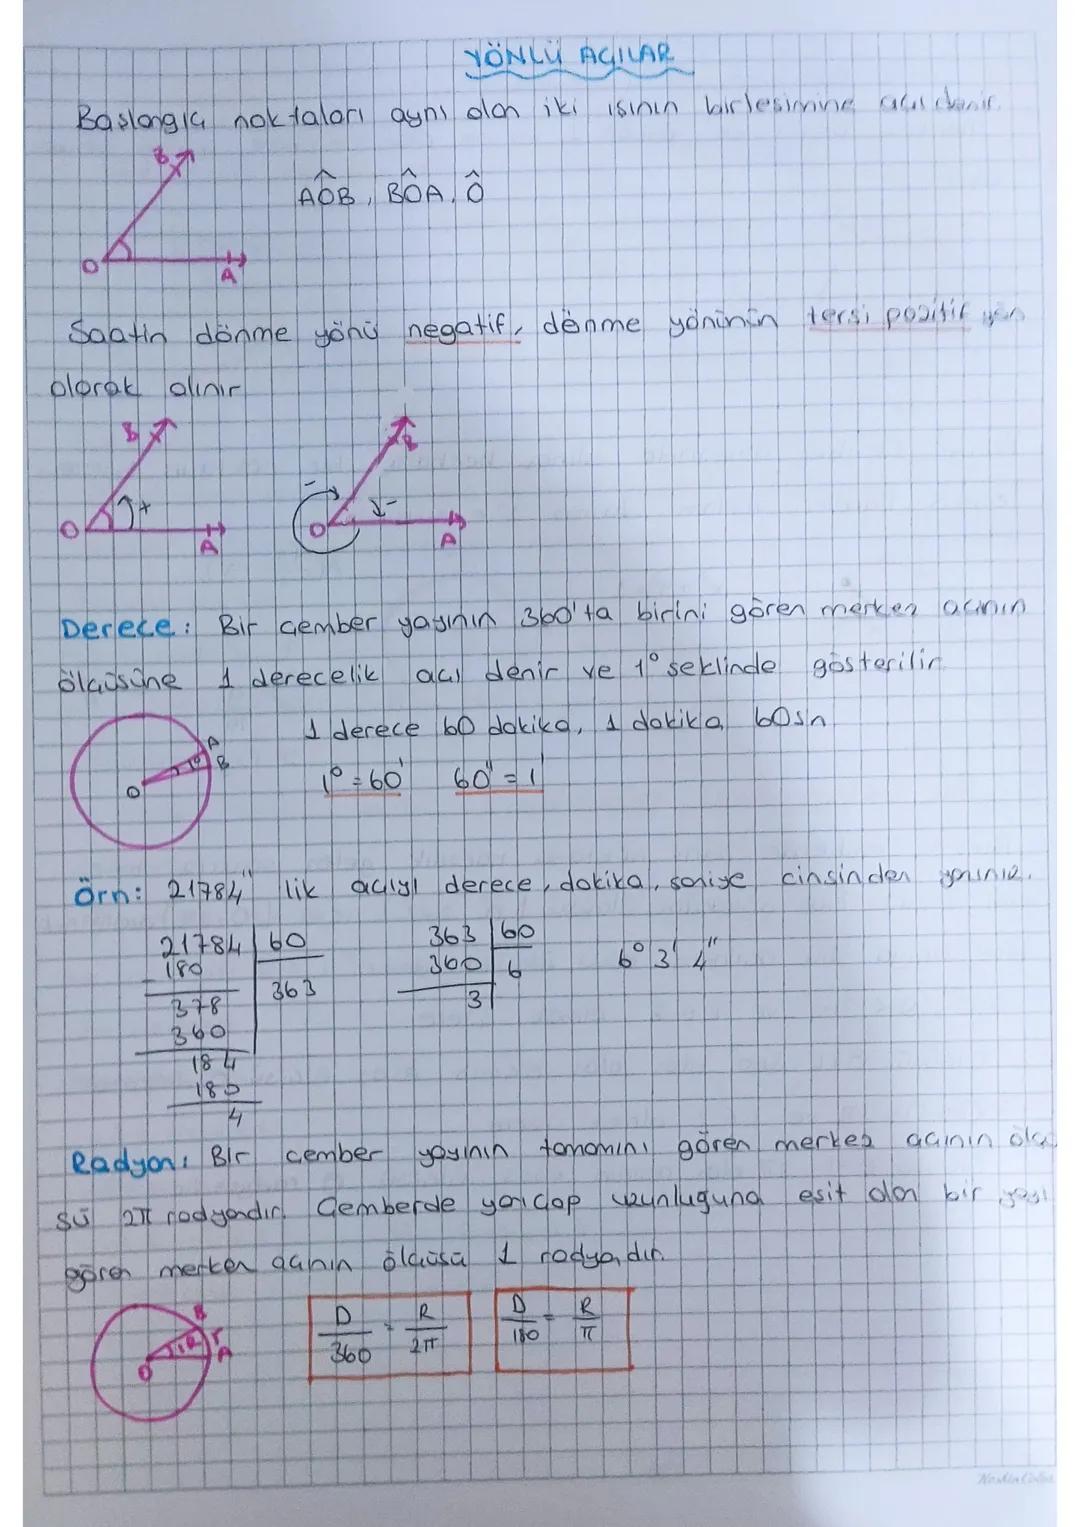 YÖNLÜ AÇILAR
Başlangıç noktaları aynı olan iki ışının birleşimine açı denir.
B
AÔB, BÔA, Ô
O
A
Saatin dönme yönü negatif, dönme yönünün tersi pozitif yön
olarak alınır
B
B
+
-
-
O
A
O
A
Derece: Bir çember yayının 360'ta birini gören merkez açının
ölçüsüne 1 derecelik açı denir ve 1° şeklinde gösterilir
1 derece 60 dakika, 1 dakika 60sn
A
B
O
1° = 60' 60" = 1'
Örn: 21784" lik açıyı derece, dakika, saniye cinsinden yazınız.
21784 60
180
363
378
360
184
180
4
363 60
360 6
3
6° 3' 4"
Radyan: Bir çember yayının tamamını gören merkez açının ölçü
sü 2π radyandır. Çemberde yarıçap uzunluğuna eşit olan bir yayı
gören merkez açının ölçüsü 1 radyandır.
B
r
A
O
D/360 = R/2π
D/180 = R/π